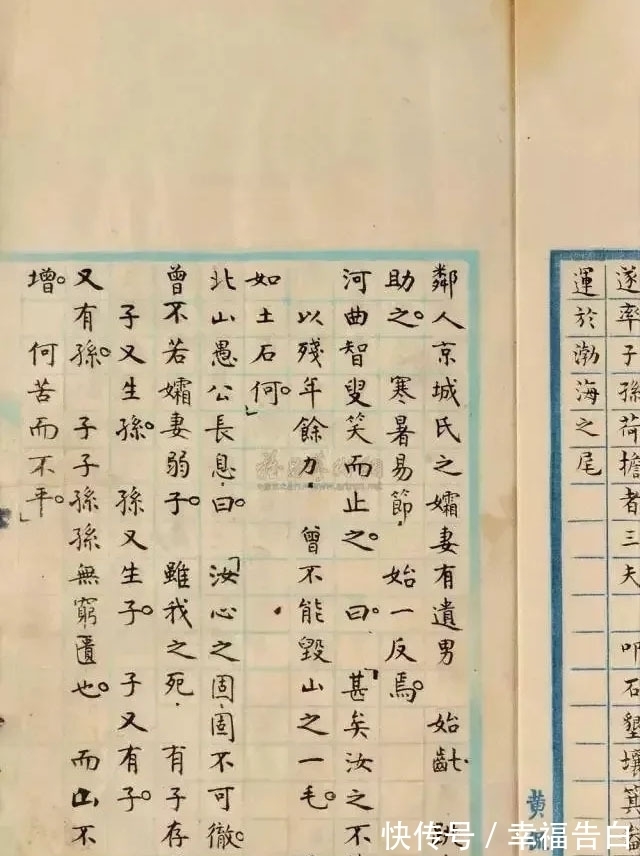 遂率子孫荷擔者三夫 叩石墾壤箕
運於渤海之尾
黄
鄰人京城氏之孀妻有遺男 始齔
助之。 寒暑易節，始一反焉。
河曲智叟笑而止之。曰。「甚矣汝之不
以殘年餘力，曾不能毀山之一毛。
如土石何。」
北山愚公長息，曰。「汝心之固，固不可徹。
曾不若孀妻弱子。 雖我之死，有子存
子又生孫。 孫又生子。 子又有子。
又有孫。 子子孫孫無窮匱也。 而山不
增。 何苦而不平。」
快传号 / 幸福告白